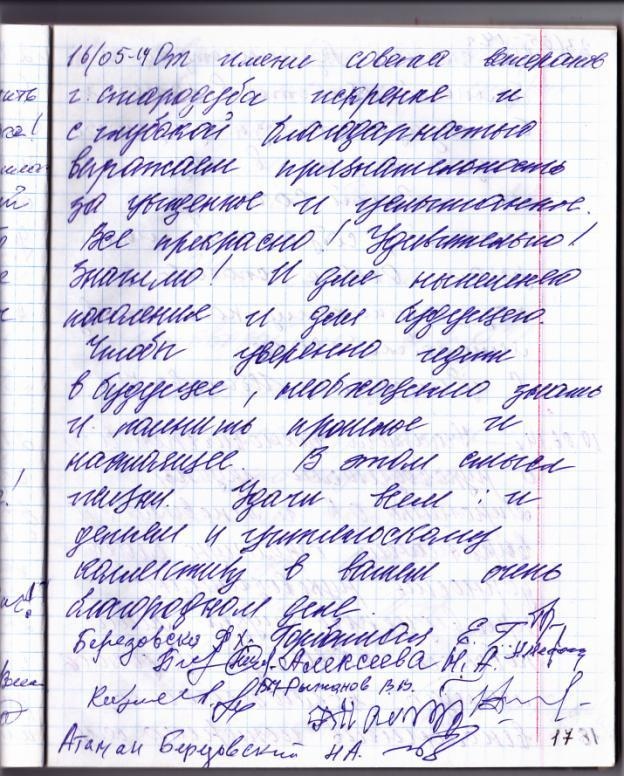 16/05-19 От имени совета ветеранов
г. Стародуба искренне и
с глубокой благодарностью
выражаем признательность
за увиденное и услышанное.
Все прекрасно! Удивительно!
Значимо! И для нынешнего
поколения и для будущего.
Чтобы уверенно идти
в будущее, необходимо знать
и помнить прошлое и
настоящее. В этом смысл
жизни. Удачи всем: и
детям и учительскому
коллективу в вашем очень
благородном деле.
Березовско Горбатая Е. Г.
Алексеева Н. А.
Рыжанов В.В.
Атаман Березовский НА.
17